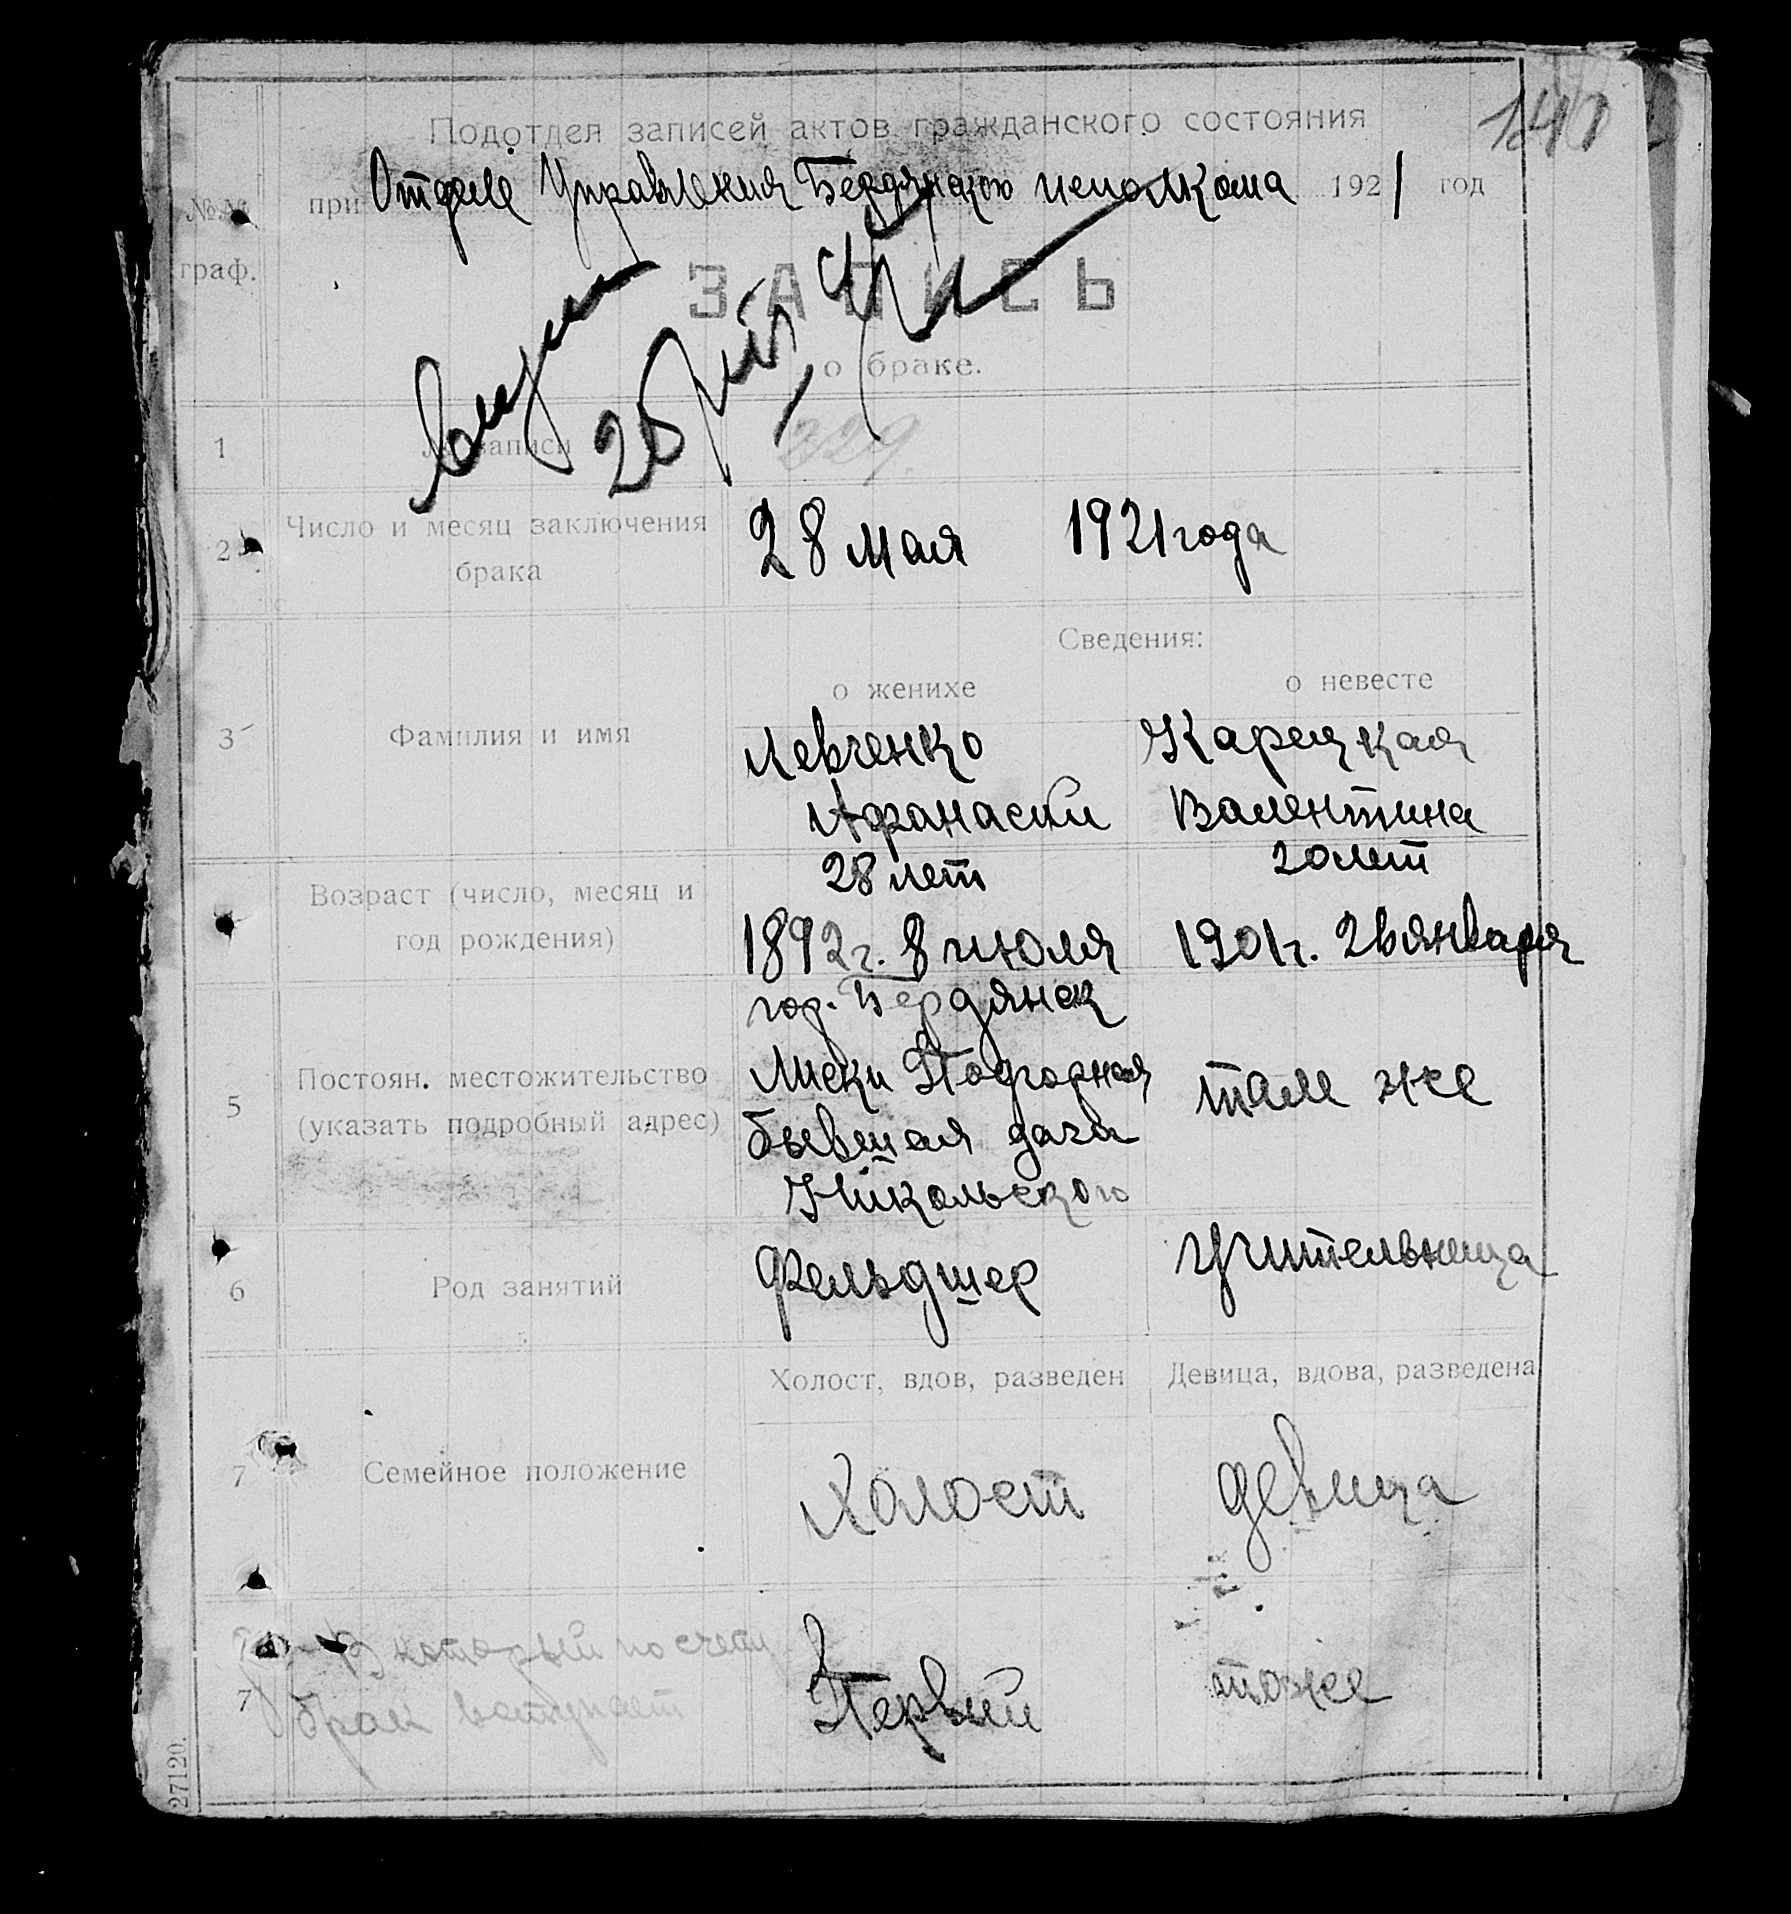 140
Подотдел записей актов гражданского состояния
при Отделе Управления Бердянского исполкома 1921 год
№№
граф.
ЗАПИСЬ
о браке.
1 № записи 329.
2 Число и месяц заключения брака 28 мая 1921 года
Сведения:
о женихе о невесте
3 Фамилия и имя Левченко Карецкая
Афанасий Валентина
28 лет 20 лет
Возраст (число, месяц и
год рождения) 1892 г. 8 июля 1901 г. 26 января
гор. Бердянск
5 Постоян. местожительство Лиски Подгорная там же
(указать подробный адрес) бывшая дача
Никольского
6 Род занятий Фельдшер Учительница
Холост, вдов, разведен Девица, вдова, разведена
7 Семейное положение Холост девица
В который по счету
7 брак вступает Первый тоже
27120.